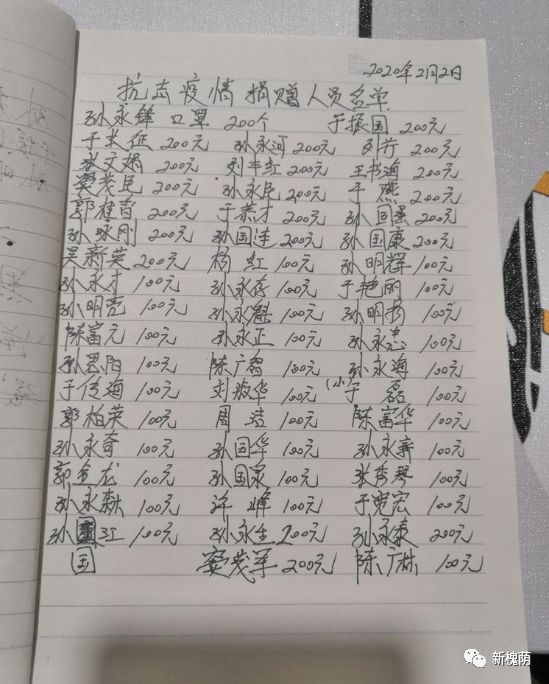 No.
Date
2020年2月2日
抗击疫情捐赠人员名单
孙永锋 口罩 200个 于振国 200元
于长征 200元 孙永河 200元 200元
张文娟 200元 刘丰红 200元 王书海 200元
窦茂臣 200元 孙永臣 200元 于燕 200元
郭桂香 200元 于荣才 200元 孙国墨 200元
孙咏刚 200元 孙国连 200元 孙国康 200元
吴新英 200元 杨红 100元 孙明辉 100元
孙永才 100元 孙永存 100元 于艳丽 100元
孙明亮 100元 孙永魁 100元 孙明杨 100元
陈富元 100元 孙永正 100元 孙永忠 100元
孙思阳 100元 陈广智 100元 孙永海 100元
于传海 100元 刘敬华 100元 (小)于磊 100元
郭柏荣 100元 周洁 100元 陈富华 100元
孙永奇 100元 孙国华 100元 孙永寿 100元
郭金龙 100元 孙国泉 100元 张秀琴 100元
孙永森 100元 许峰 100元 于贯宏 100元
孙江 100元 孙永生 200元 孙永泰 200元
国 窦茂军 200元 陈广林 100元
新槐荫